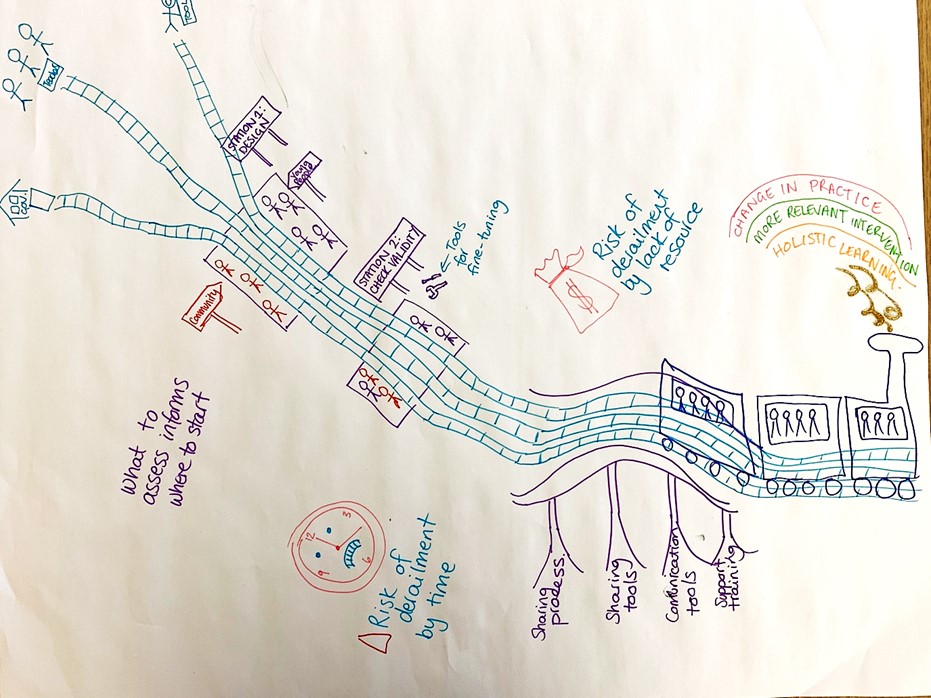 TOOL
Tool
GOV.
STATION 1:
DESIGN
Young
People
Community
STATION 2:
CHECK VALIDITY
Tools
for
fine-tuning
Risk of
derailment
by lack of
resource
$
CHANGE IN PRACTICE
MORE RELEVANT INTERVENTION
HOLISTIC LEARNING.
What to
assess informs
where to start
12
3
6
9
Risk of
derailment
by time
Sharing
process.
Sharing
tools
Communication
tools
Support
training